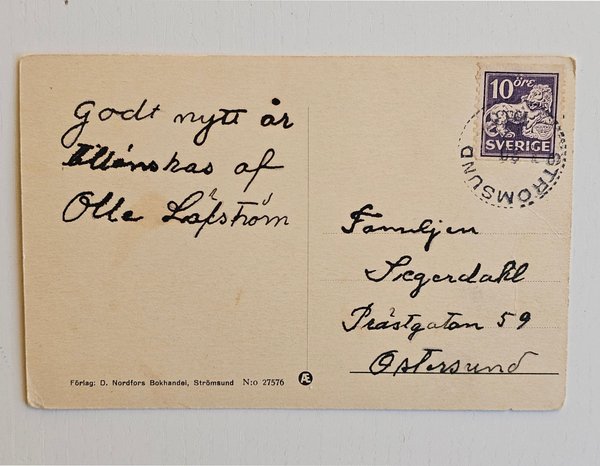 Godt nytt år
tillönskas af
Olle Läfström
10 ÖRE
SVERIGE
STRÖMSUND
Familjen
Segerdahl
Prästgatan 59
Östersund
Förlag: D. Nordfors Bokhandel, Strömsund N:o 27576 Æ